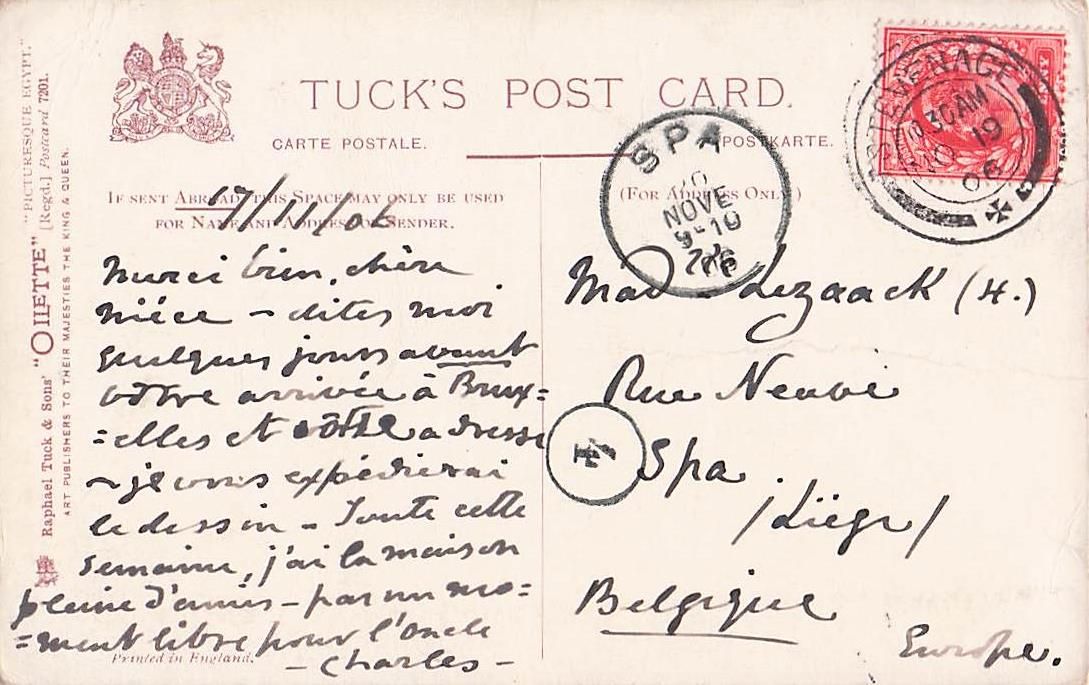 "PICTURESQUE EGYPT."
Raphael Tuck & Sons' "OILETTE" [Regd.] Postcard 7201.
ART PUBLISHERS TO THEIR MAJESTIES THE KING & QUEEN.
TUCK'S POST CARD.
CARTE POSTALE.
POSTKARTE.
IF SENT ABROAD THIS SPACE MAY ONLY BE USED
FOR NAME AND ADDRESS OF SENDER.
(FOR ADDRESS ONLY)
STEVENAGE
30 AM
NO 19
06
SPA
NOVE
9-10
17/11/06
Merci bien, chère
nièce – dites moi
quelques jours avant
votre arrivée à Brux=
=elles et votre adresse
~ je vous expédierai
le dessin – Toute cette
semaine, j'ai la maison
pleine d'amis – pas un mo=
=ment libre pour l'Oncle
– Charles –
Mad Lezaack (H.)
Rue Neuve
4
Spa
/Liège/
Belgique
Europe.
Printed in England.